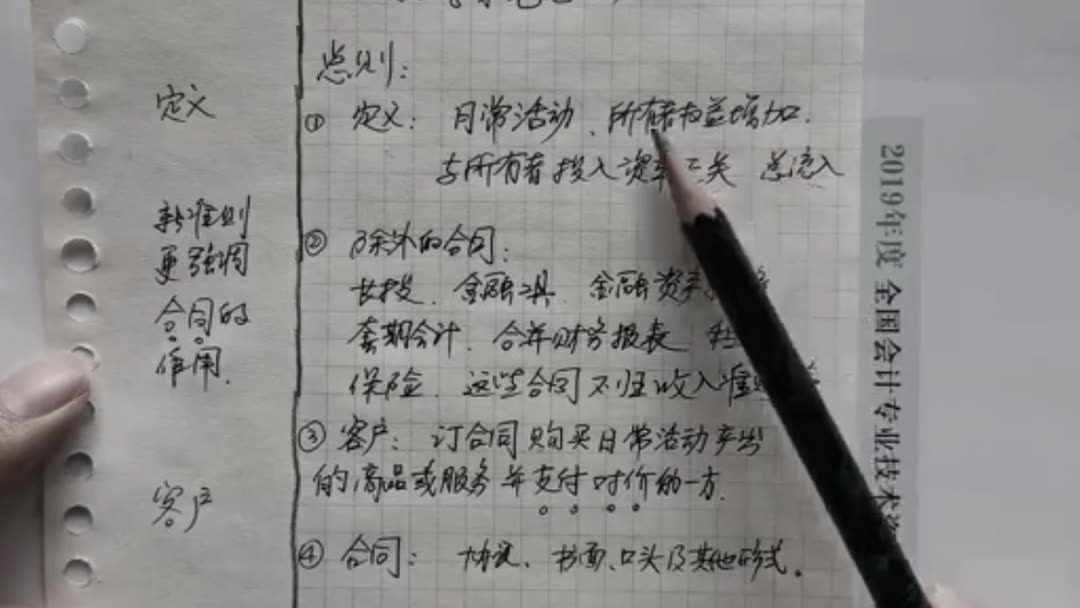 定义
新准则
更强调
合同的
作用.
客户
总则:
① 定义: 日常活动、所有者权益增加.
与所有者投入资本无关 总流入
② 除外的合同:
长投、金融工具、金融资产
套期会计、合并财务报表
保险、这些合同不归收入准则
③ 客户: 订合同购买日常活动产出
的商品或服务并支付对价的一方.
④ 合同: 协议、书面、口头及其他形式。
2019年度 全国会计专业技术